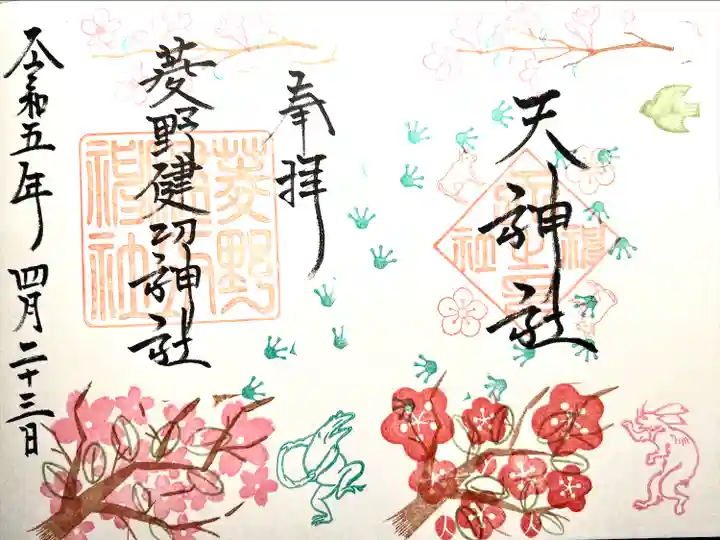 天神社
奉拝
菱野健功神社
令和五年 四月二十三日
菱野
神社